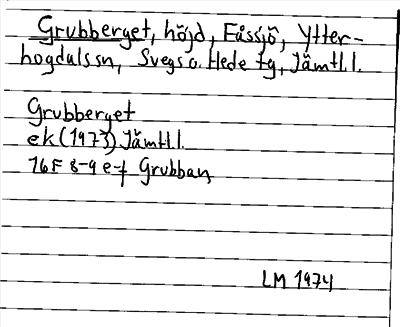 Grubberget, höjd, Fåssjö, Ytter-
hogdals sn, Svegs o. Hede tg, Jämtl. l.
Grubberget
ek (1973) Jämtl. l.
16F 8-9 e-f Grubban
LM 1974